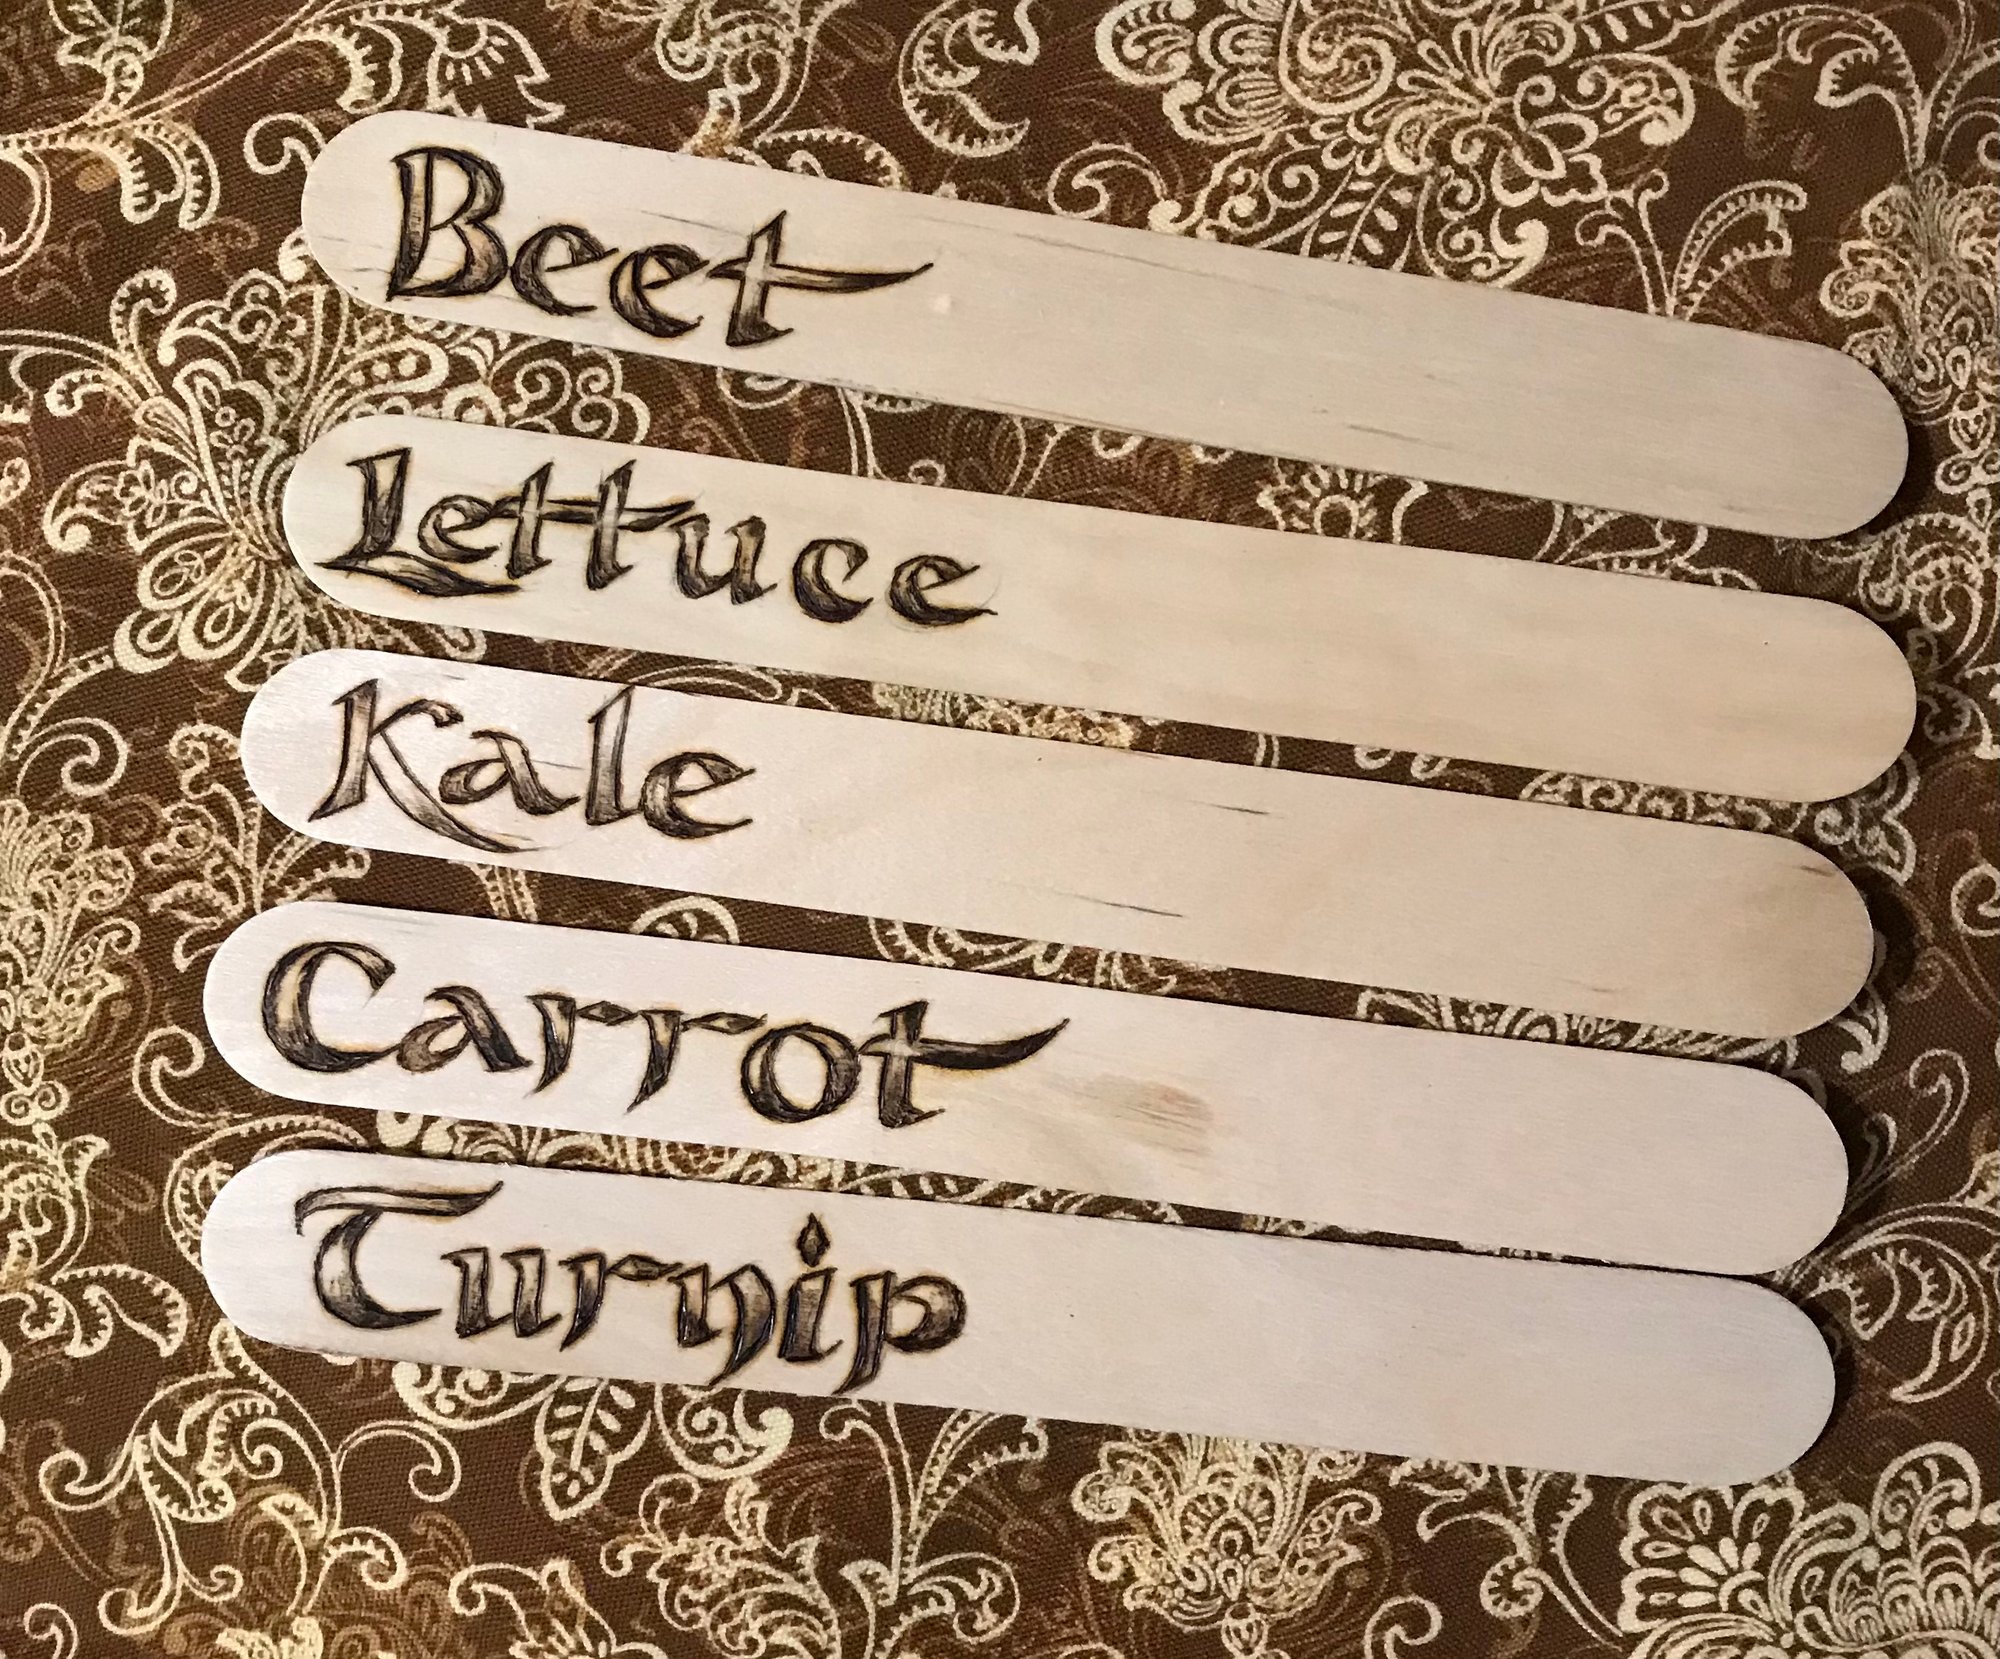 Beet
Lettuce
Kale
Carrot
Turnip